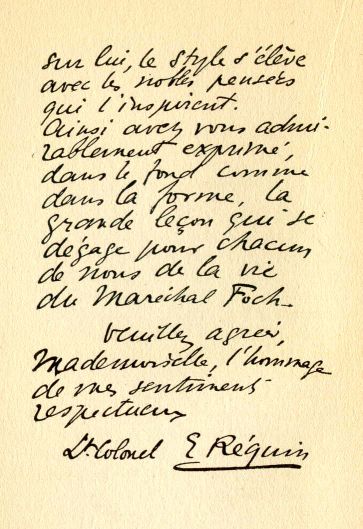 sur lui, le style s'élève
avec les nobles pensées
qui l'inspirent.
Ainsi avez vous admi-
rablement exprimé,
dans le fond comme
dans la forme, la
grande leçon qui se
dégage pour chacun
de nous de la vie
du Maréchal Foch.
Veuillez agréer,
Mademoiselle, l'hommage
de mes sentiments
respectueux
Lt. Colonel E Réquin